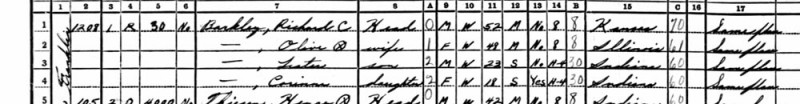 1 2 3 4 5 6 7 8 A 9 10 11 12 13 14 B 15 C 16 17
1 1208 1 R 30 No Barkley, Richard C Head 0 M W 52 M No 8 8 Kansas 70 Same place
2 —, Olive wife 1 F W 48 M No 8 8 Illinois 61 Same place
3 —, son 2 M W 23 S No H-4 30 Indiana 60 Same place
4 —, Corinne daughter 2 F W 18 S Yes H-4 30 Indiana 60 Same place
5 M W 42 M No 8